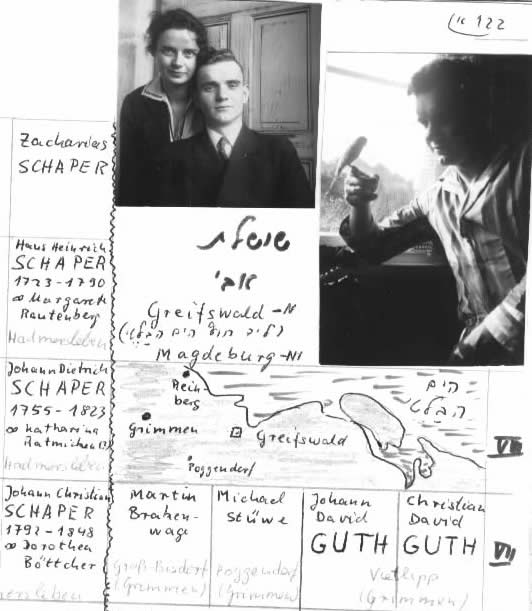 122
Zacharias
SCHAPER
Hans Heinrich
SCHAPER
1723-1790
∞ Margareth
Rautenberg
Hadmersleben
Johann Dietrich
SCHAPER
1755-1823
∞ Katharina
Hadmersleben
Johann Christian
SCHAPER
1792-1848
∞ Dorothea
Böttcher
שושלת
אבי
Greifswald-מ
(ליד חוף הים הבלטי)
Magdeburg-ומ
Rein-
berg
Grimmen
Greifswald
Poggendorf
הים
הבלטי
VIII
Martin
Braken-
wage
Groß-Bisdorf
(Grimmen)
Michael
Stüwe
Poggendorf
(Grimmen)
Johann
David
GUTH
Christian
David
GUTH
Vietlipp
(Grimmen)
VII